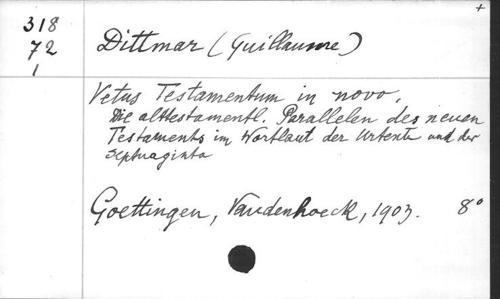 +
318
72
1
Dittmar (Guillaume)
Vetus Testamentum in novo.
Die alttestamentl. Parallelen des neuen
Testaments im Wortlaut der Urtexte und der
Septuaginta
Goettingen, Vandenhoeck, 1903. 8°